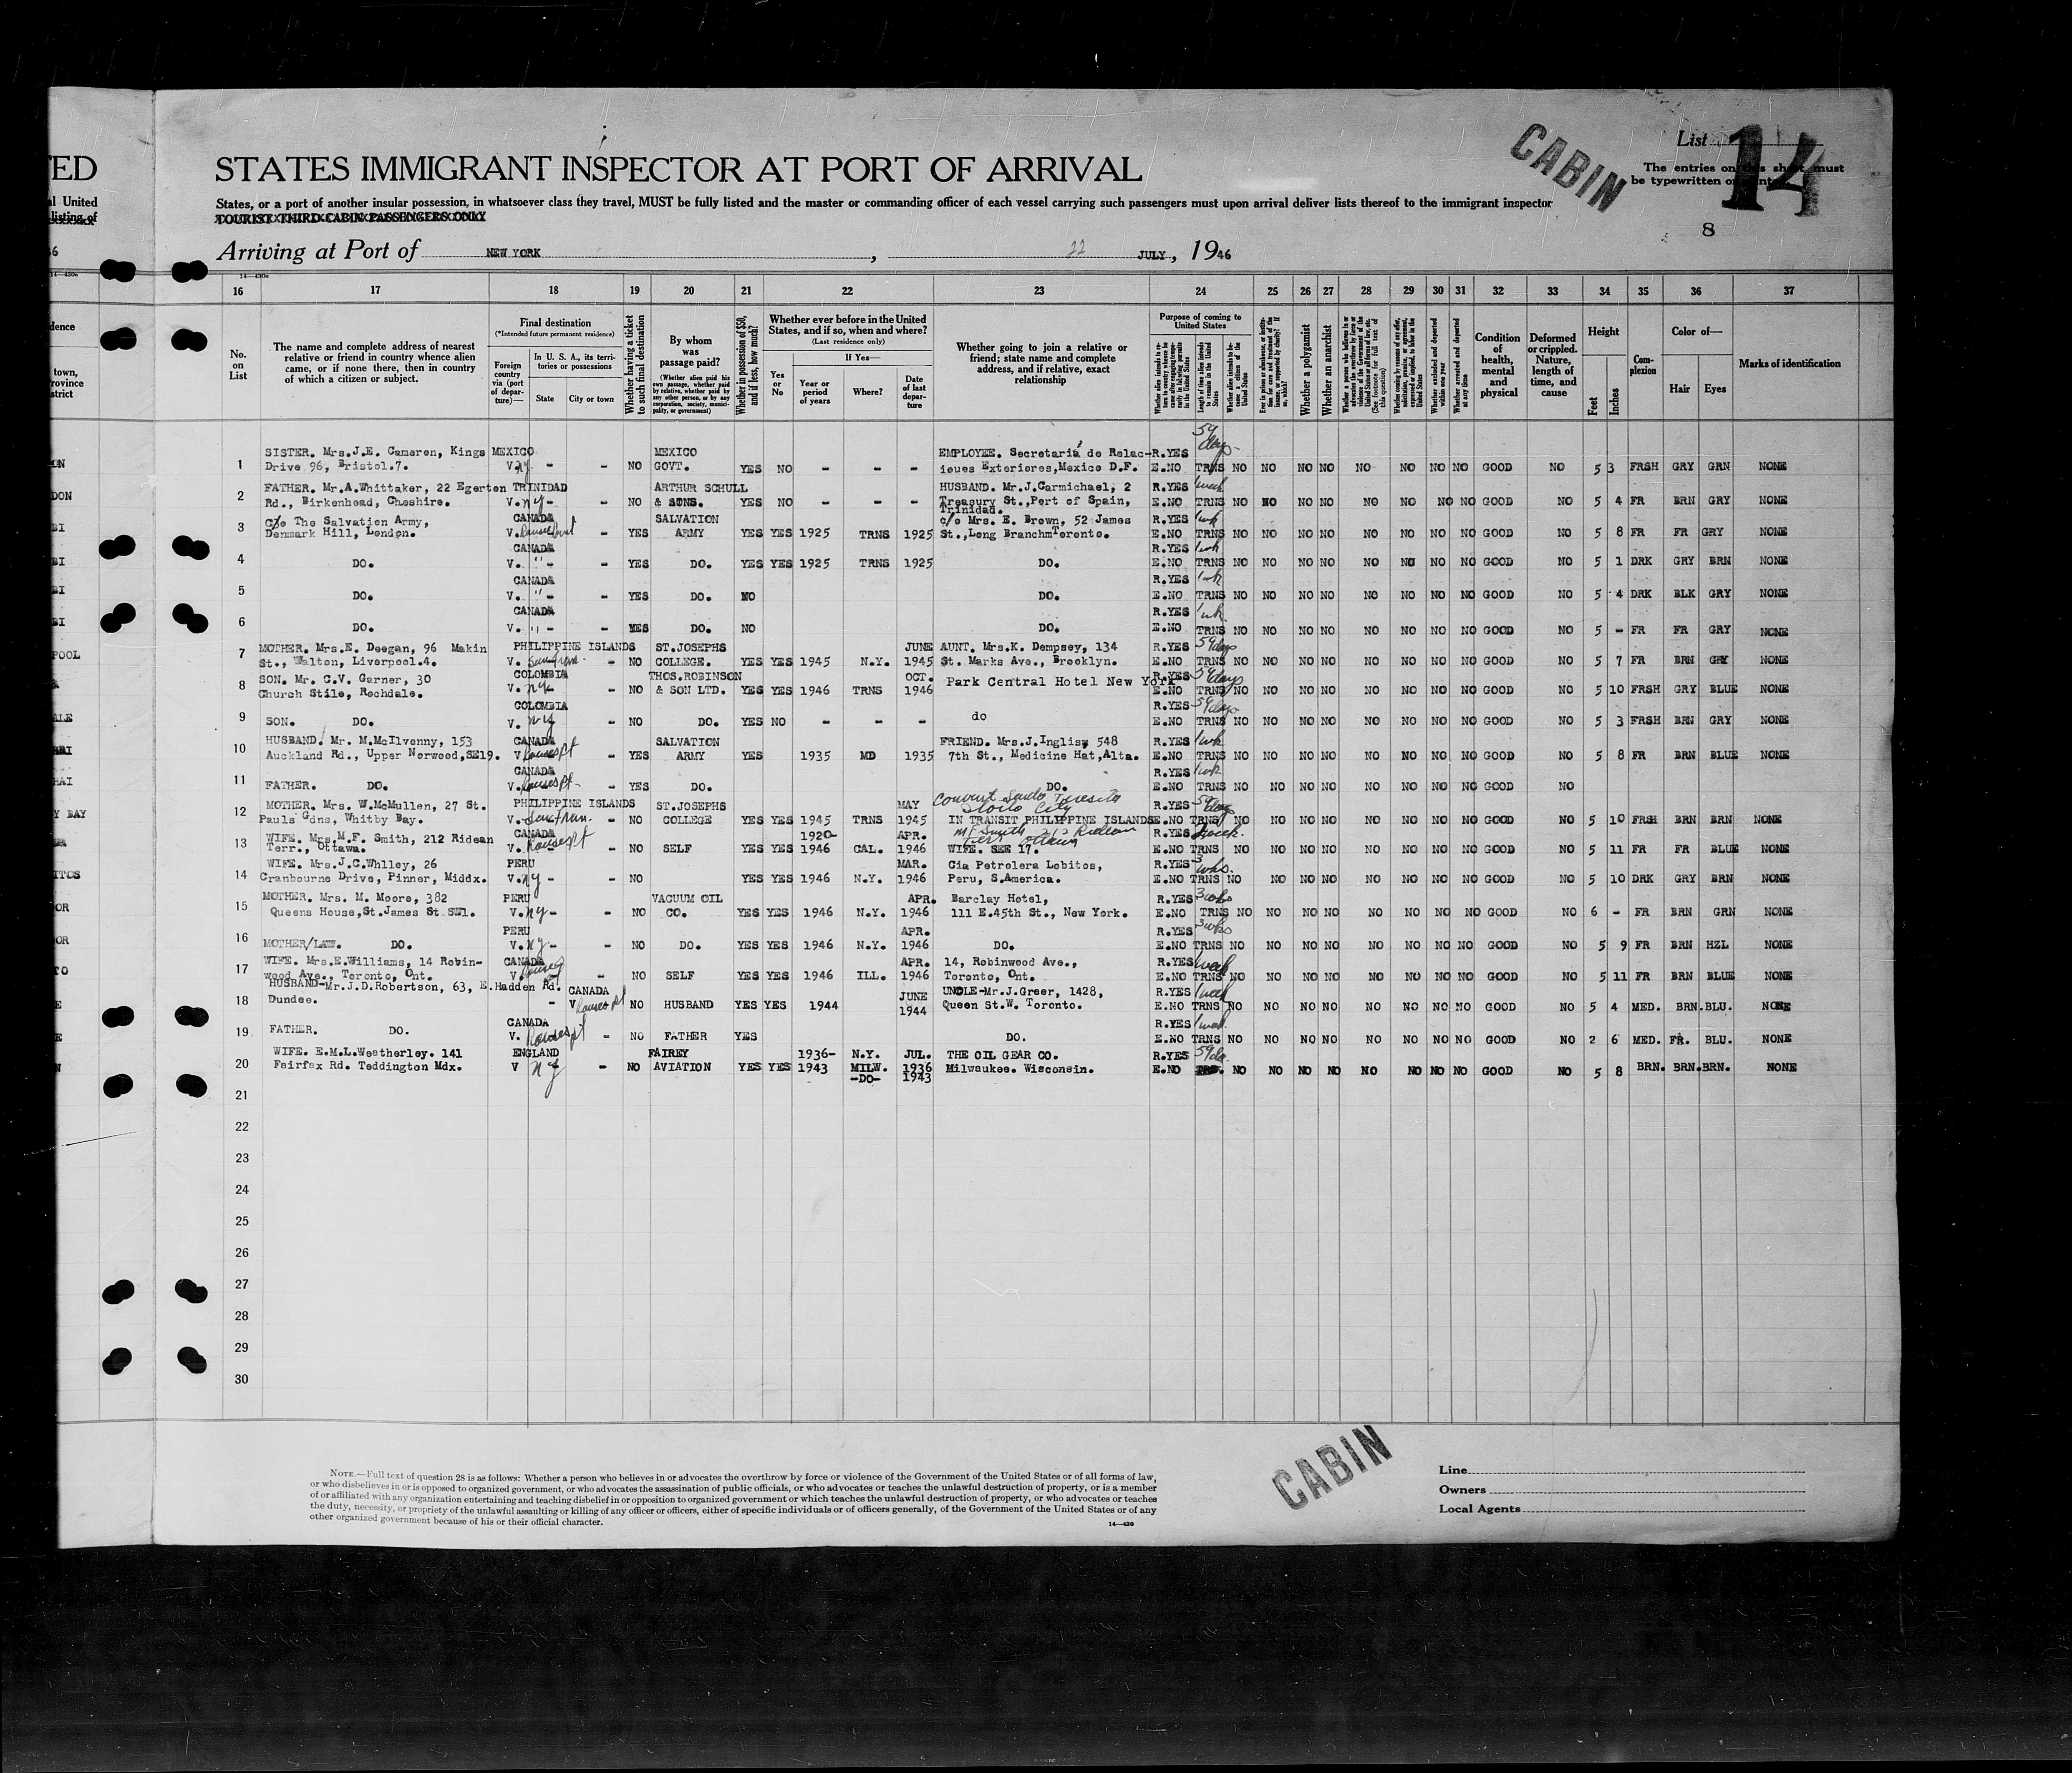 TED
al United
listing of
List 14
CABIN
STATES IMMIGRANT INSPECTOR AT PORT OF ARRIVAL
The entries on this sheet must
be typewritten or
States, or a port of another insular possession, in whatsoever class they travel, MUST be fully listed and the master or commanding officer of each vessel carrying such passengers must upon arrival deliver lists thereof to the immigrant inspector
TOURIST THIRD CABIN PASSENGERS ONLY
8
Arriving at Port of NEW YORK, 22 JULY, 1946
14—430c
16 17 18 19 20 21 22 23 24 25 26 27 28 29 30 31 32 33 34 35 36 37
No. on List
The name and complete address of nearest relative or friend in country whence alien came, or if none there, then in country of which a citizen or subject.
Final destination
(*Intended future permanent residence)
Foreign country via (port of departure)—
In U. S. A., its territories or possessions
State
City or town
Whether having a ticket to such final destination
By whom was passage paid?
(Whether alien paid his own passage, whether paid by relative, whether paid by any other person, or by any corporation, society, municipality, or government)
Whether in possession of $50, and if less, how much?
Whether ever before in the United States, and if so, when and where?
(Last residence only)
Yes or No
If Yes—
Year or period of years
Where?
Date of last departure
Whether going to join a relative or friend; state name and complete address, and if relative, exact relationship
Purpose of coming to United States
Whether a polygamist
Whether an anarchist
Condition of health, mental and physical
Deformed or crippled. Nature, length of time, and cause
Height
Feet
Inches
Complexion
Color of—
Hair
Eyes
Marks of identification
1 SISTER. Mrs.J.E. Cameron, Kings Drive 96, Bristol.7. MEXICO V. NY - - NO MEXICO GOVT. YES NO - - - EMPLOYEE. Secretaria de Relacioues Exteriores,Mexico D.F. R.YES E.NO 59 days TRNS NO NO NO NO NO NO NO NO GOOD NO 5 3 FRSH GRY GRN NONE
2 FATHER. Mr.A.Whittaker, 22 Egerton Rd., Birkenhead, Cheshire. TRINIDAD V. NY - - NO ARTHUR SCHULL & SONS. YES NO - - - HUSBAND. Mr.J.Carmichael, 2 Treasury St.,Port of Spain, Trinidad. R.YES E.NO 1 week TRNS NO NO NO NO NO NO NO NO GOOD NO 5 4 FR BRN GRY NONE
3 C/o The Salvation Army, Denmark Hill, London. CANADA V. - YES SALVATION ARMY YES YES 1925 TRNS 1925 c/o Mrs. E. Brown, 52 James St.,Long BranchmToronto. R.YES E.NO 1 wk TRNS NO NO NO NO NO NO NO NO GOOD NO 5 8 FR FR GRY NONE
4 DO. CANADA V. " - - YES DO. YES YES 1925 TRNS 1925 DO. R.YES E.NO 1 wk TRNS NO NO NO NO NO NO NO NO GOOD NO 5 1 DRK GRY BRN NONE
5 DO. CANADA V. " - - YES DO. NO DO. R.YES E.NO 1 wk TRNS NO NO NO NO NO NO NO NO GOOD NO 5 4 DRK BLK GRY NONE
6 DO. CANADA V. " - - YES DO. NO DO. R.YES E.NO 1 wk TRNS NO NO NO NO NO NO NO NO GOOD NO 5 - FR FR GRY NONE
7 MOTHER. Mrs.E. Deegan, 96 Makin St., Walton, Liverpool.4. PHILIPPINE ISLANDS V. San Fran. - NO ST.JOSEPHS COLLEGE. YES YES 1945 N.Y. JUNE 1945 AUNT. Mrs.K. Dempsey, 134 St. Marks Ave., Brooklyn. R.YES E.NO 59 days TRNS NO NO NO NO NO NO NO NO GOOD NO 5 7 FR BRN GRY NONE
8 SON. Mr. C.V. Garner, 30 Church Stile, Rochdale. COLOMBIA V. NY - - NO THOS.ROBINSON & SON LTD. YES YES 1946 TRNS OCT. 1946 Park Central Hotel New York R.YES E.NO 59 days TRNS NO NO NO NO NO NO NO NO GOOD NO 5 10 FRSH GRY BLUE NONE
9 SON. DO. COLOMBIA V. NY - NO DO. YES NO - - - do R.YES E.NO 59 days TRNS NO NO NO NO NO NO NO NO GOOD NO 5 3 FRSH BRN GRY NONE
10 HUSBAND. Mr. M.McIlvenny, 153 Auckland Rd., Upper Norwood,SE19. CANADA V. Rouses Pt - YES SALVATION ARMY YES 1935 MD 1935 FRIEND. Mrs.J.Inglis, 548 7th St., Medicine Hat,Alta. R.YES E.NO 1 wk TRNS NO NO NO NO NO NO NO NO GOOD NO 5 8 FR BRN BLUE NONE
11 FATHER. DO. CANADA V. Rouses Pt - - YES DO. DO. R.YES E.NO 1 wk TRNS NO NO NO NO NO NO NO NO GOOD NO
12 MOTHER. Mrs. W.McMullen, 27 St. Pauls Gdns, Whitby Bay. PHILIPPINE ISLANDS V. San Fran. - NO ST.JOSEPHS COLLEGE YES YES 1945 TRNS MAY 1945 Convent Iloilo City IN TRANSIT PHILIPPINE ISLANDS R.YES E.NO 59 days TRNS NO NO NO NO NO NO NO NO GOOD NO 5 10 FRSH BRN BRN NONE
13 WIFE. Mrs.M.F. Smith, 212 Ridean Terr., Ottawa. CANADA V. Rouses pt - NO SELF YES YES 1920- 1946 CAL. APR. 1946 MF Smith 212 Rideau Terr Ottawa WIFE. SEE 17. R.YES E.NO week TRNS NO NO NO NO NO NO NO NO GOOD NO 5 11 FR FR BLUE NONE
14 WIFE. Mrs.J.C.Whlley, 26 Cranbourne Drive, Pinner, Middx. PERU V. NY - - NO YES YES 1946 N.Y. MAR. 1946 Cia Petrolera Lobitos, Peru, S.America. R.YES E.NO 3 wks. TRNS NO NO NO NO NO NO NO NO GOOD NO 5 10 DRK GRY BRN NONE
15 MOTHER. Mrs. M. Moore, 382 Queens House,St.James St.SW1. PERU V. NY - - NO VACUUM OIL CO. YES YES 1946 N.Y. APR. 1946 Barclay Hotel, 111 E.45th St., New York. R.YES E.NO 3 wks TRNS NO NO NO NO NO NO NO NO GOOD NO 6 - FR BRN GRN NONE
16 MOTHER/LAW. DO. PERU V. NY - - NO DO. YES YES 1946 N.Y. APR. 1946 DO. R.YES E.NO 3 wks TRNS NO NO NO NO NO NO NO NO GOOD NO 5 9 FR BRN HZL NONE
17 WIFE. Mrs.E.Williams, 14 Robinwood Ave., Toronto, Ont. CANADA V. Rouses - NO SELF YES YES 1946 ILL. APR. 1946 14, Robinwood Ave., Toronto, Ont. R.YES E.NO week TRNS NO NO NO NO NO NO NO NO GOOD NO 5 11 FR BRN BLUE NONE
18 HUSBAND-Mr.J.D.Robertson, 63, E.Hadden Rd. Dundee. CANADA - V Rouses pt NO HUSBAND YES YES 1944 JUNE 1944 UNCLE-Mr.J.Greer, 1428, Queen St.W. Toronto. R.YES E.NO 1 week TRNS NO NO NO NO NO NO NO NO GOOD NO 5 4 MED. BRN. BLU. NONE
19 FATHER. DO. CANADA V. Rouses pt - NO FATHER YES DO. R.YES E.NO 1 week TRNS NO NO NO NO NO NO NO NO GOOD NO 2 6 MED. FR. BLU. NONE
20 WIFE. E.M.L.Weatherley. 141 Fairfax Rd. Teddington Mdx. ENGLAND V NY - NO FAIREY AVIATION YES YES 1936- 1943 N.Y. MILW. -DO- JUL. 1936 1943 THE OIL GEAR CO. Milwaukee. Wisconsin. R.YES E.NO 59 da. NO NO NO NO NO NO NO NO GOOD NO 5 8 BRN. BRN. BRN. NONE
21
22
23
24
25
26
27
28
29
30
CABIN
NOTE.—Full text of question 28 is as follows: Whether a person who believes in or advocates the overthrow by force or violence of the Government of the United States or of all forms of law,
or who disbelieves in or is opposed to organized government, or who advocates the assassination of public officials, or who advocates or teaches the unlawful destruction of property, or is a member
of or affiliated with any organization entertaining and teaching disbelief in or opposition to organized government or which teaches the unlawful destruction of property, or who advocates or teaches
the duty, necessity, or propriety of the unlawful assaulting or killing of any officer or officers, either of specific individuals or of officers generally, of the Government of the United States or of any
other organized government because of his or their official character.
14—430
Line
Owners
Local Agents